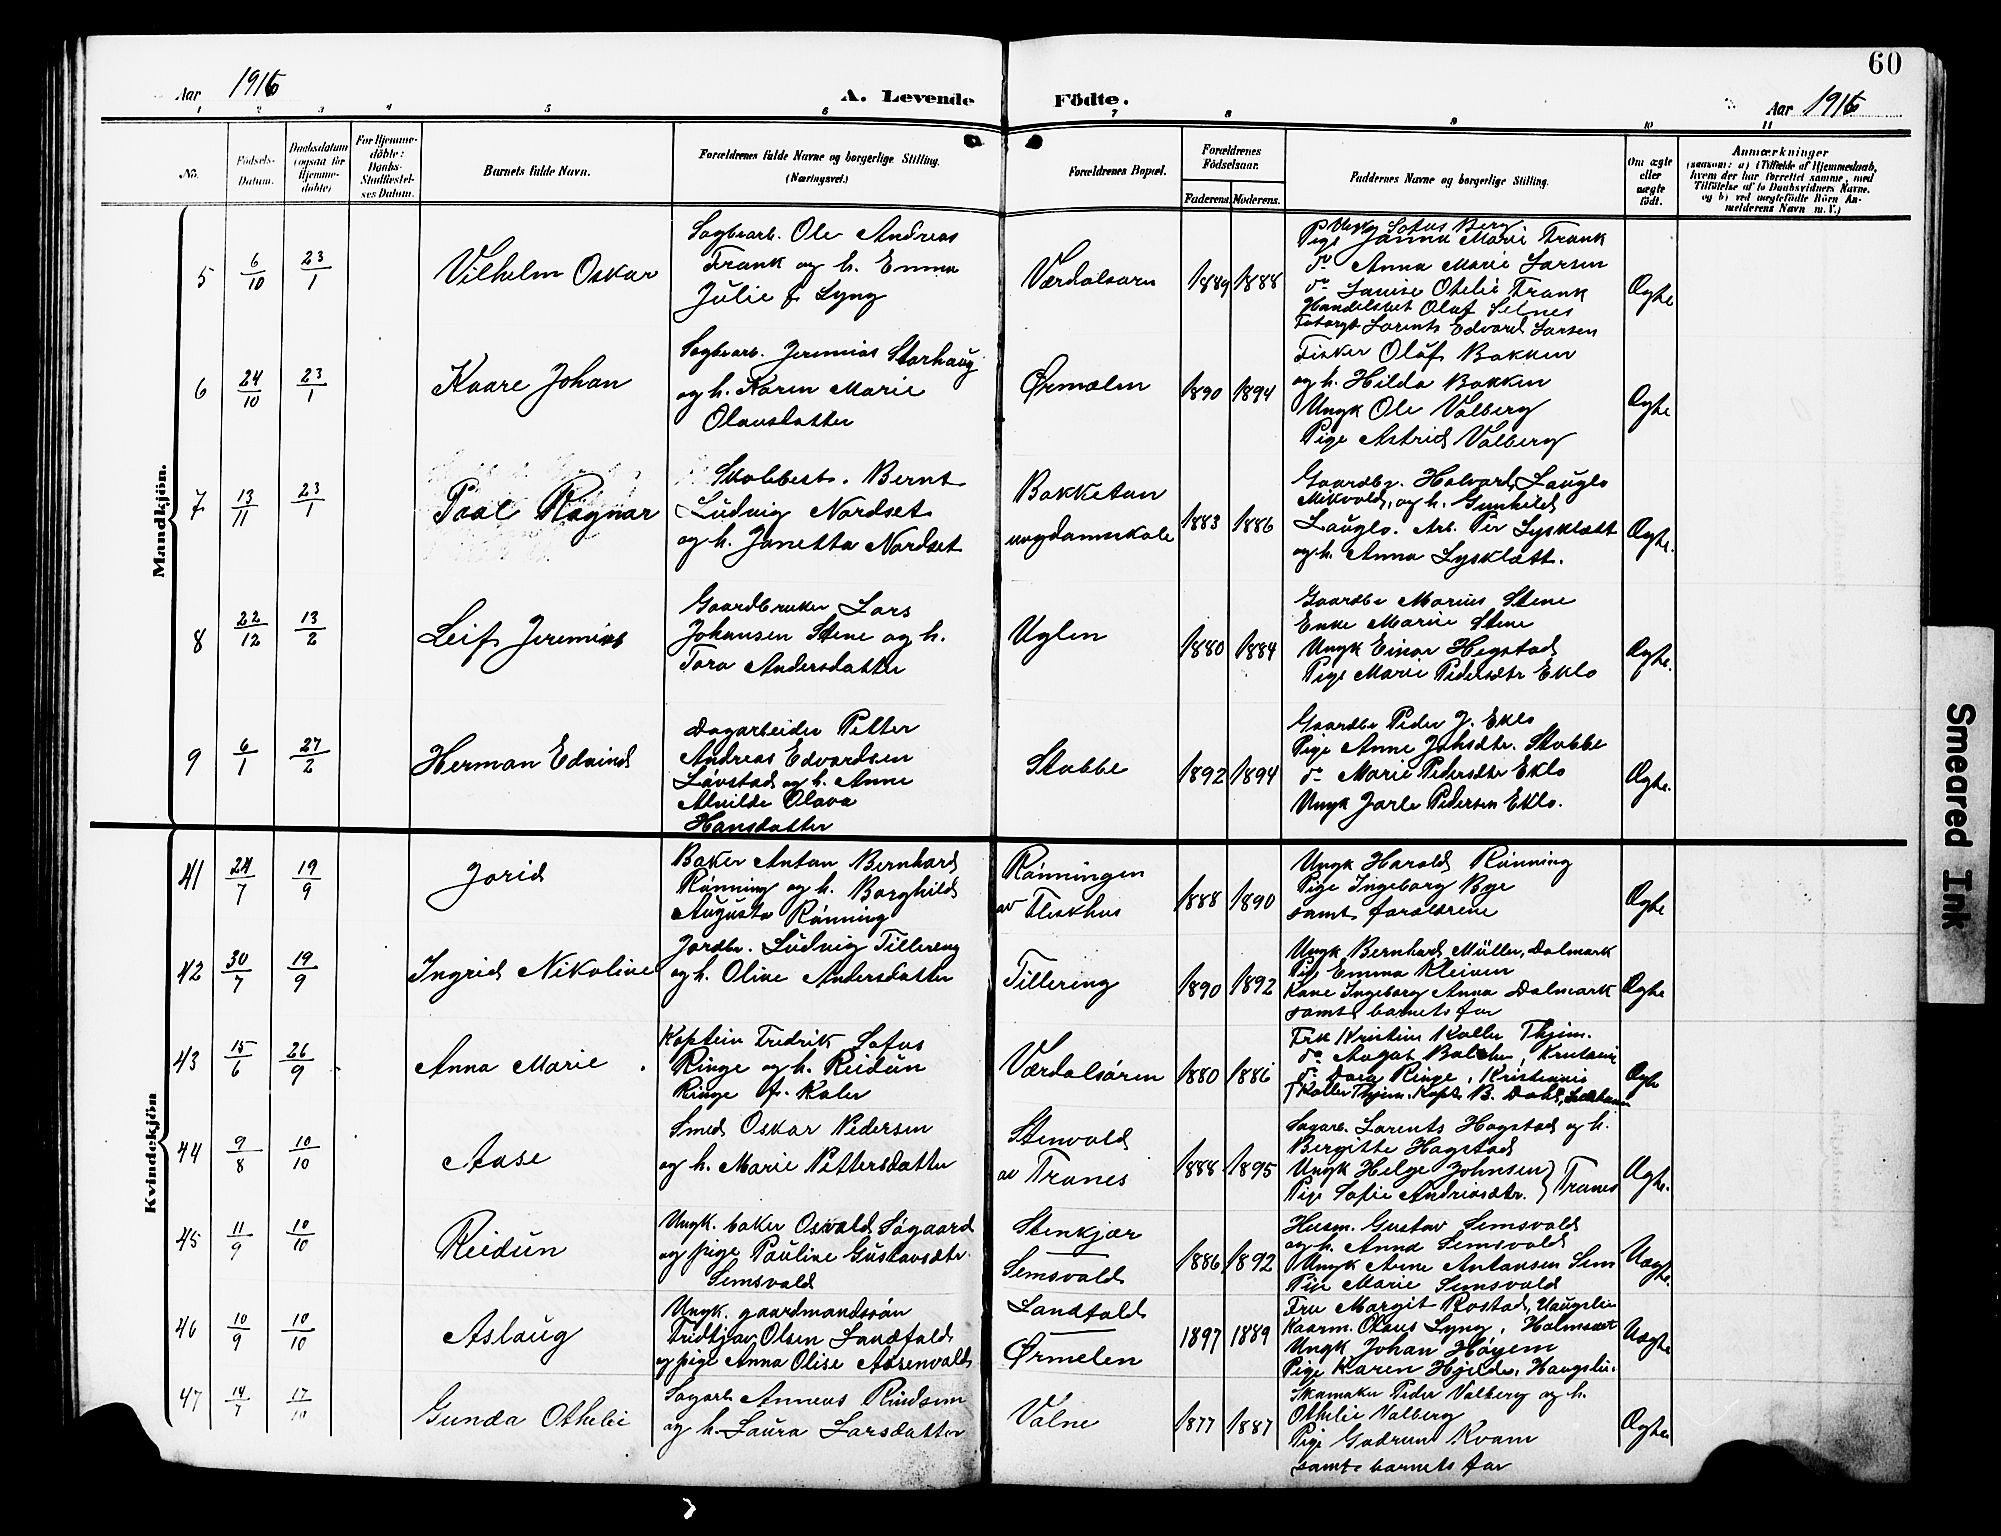 60
Aar 1916
A. Levende Födte.
Aar 1916
1 2 3 4 5 6 7 8 9 10 11
No.
Födsels-
Datum.
Daabsdatum
(ogsaa for
Hjemme-
döbte)
For Hjemme-
döbte:
Daabs-
Stadfæstel-
ses Datum.
Barnets fulde Navn.
Forældrenes fulde Navne og borgerlige Stilling.
(Næringsvei.)
Forældrenes Bopæl.
Forældrenes
Födselsaar.
Faderens. Moderens.
Faddernes Navne og borgerlige Stilling.
Om ægte
eller
uægte
födt.
Anmærkninger
(saasom: a) i Tilfælde af Hjemmedaab,
hvem der har forrettet samme, med
Tilföielse af to Daabsvidners Navne.
og b) ved uægtefödte Börn An-
melderens Navn m. V.)
Mandkjön.
5 6/10 23/1
Vilhelm Oskar
Sagbrarb. Ole Andreas
Frank og h. Emma
Julie f. Lyng
Værdalsørn
1889 1888
Ungk Sofus Berg
Pige Janna Marie Frank
do Anna Marie Larsen
do Louise Otelie Frank
Handelsbet Olaf Selnes
Lorents Edvard Larsen
Ægte
6 24/10 23/1
Kaare Johan
Sagbrarb. Jeremias Storhaug
og h. Karen Marie
Olausdatter
Ørmælen
1890 1894
Fisker Oluf Bakken
og h. Hilda Bakken
Ungk Ole Valberg
Pige Astrid Valberg
Ægte
7 13/11 23/1
Paal Ragnar
Skolebest. Bernt
Ludvig Nordset
og h. Janetta Nordset
Bakketun
ungdomsskole
1883 1886
Gaardbr. Halvard Lauglo
Mikvold, og h. Gunhild
Lauglo. Arb. Per Lysklætt
og h. Anna Lysklætt.
Ægte.
8 22/12 13/2
Leif Jeremias
Gaardbruker Lars
Johansen Stene og h.
Tora Andersdatter
Uglen
1880 1884
Gaardbr Marius Stene
Enke Marie Stene
Ungk Einar Hegstad
Pige Marie Pedersdtr Eklo
Ægte.
9 6/1 27/2
Herman Edvind
Dagarbeider Petter
Andreas Edvardsen
Løvstad og h. Anne
Alvilde Olava
Hansdatter
Stubbe
1892 1894
Gaardbr Peder J. Eklo
Pige Anne Johsdtr. Stubbe
do Marie Pedersdtr Eklo
Ungk Jarle Pedersen Eklo.
Ægte.
Kvindekjön
41 24/7 19/9
Jorid
Baker Anton Bernhard
Rønning og h. Borghild
Augusta Rønning
Rønningen
av Fleskhus
1888 1890
Ungk Harald Rønning
Pige Ingeborg Bye
samt forældrene
Ægte
42 30/7 19/9
Ingrid Nikoline
Jordbr. Ludvig Tillereng
og h. Oline Andersdatter
Tillereng
1890 1892
Ungk Bernhard Müller, Dalmark
Pige Emma Kleiven
Kone Ingeborg Anna Dalmark
samt barnets far
Ægte
43 15/6 26/9
Anna Marie
Kaptein Fredrik Sofus
Ringe og h. Reidun
Ringe f. Koler
Værdalsøren
1880 1886
Frk Kristine Koller Thjem.
do Dora Ringe, Kristiania
Koller Thjem. Kapt. B. Dahl,
Ægte
44 9/8 10/10
Aase
Smed Oskar Pedersen
og h. Marie Pettersdatter
Stenvold
av Tranes
1888 1895
Sagarb. Lorents Hagstad og h.
Bergitte Hagstad
Ungk Helge Johnsen } Tranes
Pige Sofie Andreasdtr.
Ægte.
45 11/9 10/10
Reidun
Ungk. baker Osvald Søgaard
og pige Pauline Gustavsdtr.
Semsvald
Stenkjær
Semsvald
1886 1892
Husm. Gustav Semsvald
og h. Anna Semsvald
Ungk Arne Antonsen Sem
Pige Marie Semsvald
Uægte.
46 10/9 10/10
Aslaug
Ungk. gaardmandssøn
Fridtjav Olsen Landfald
og pige Anna Olise Aasenvald
Landfald
Ørmelen
1897 1889
Fru Margit Rostad,
Kaarm. Olaus Lyng, Holmsvet
Ungk Johan Høyem
Pige Karen Hjelde, Haugslie.
Uægte
47 14/7 17/10
Gunda Othelie
Sagarb Anneus Rindsem
og h. Laura Larsdatter
Volne
1877 1887
Skomaker Peder Valberg og h.
Othelie Valberg
Pige Gudrun Kvam
samt barnets far
Ægte.
Smeared Ink